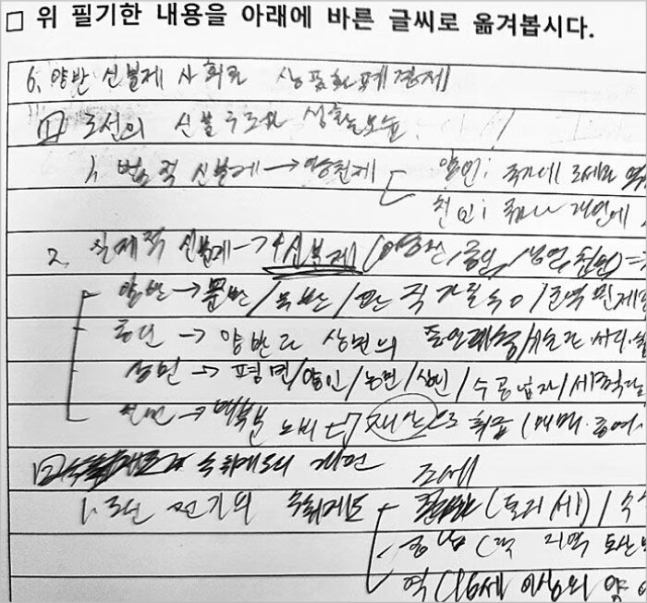 □ 위 필기한 내용을 아래에 바른 글씨로 옮겨봅시다.
6. 양반 신분제 사회와 상품화폐경제
1 조선의 신분구조와
1. 법적 신분제 → 양천제 양인; 국가에 조세와
천인; 국가나 개인에
2. 실제적 신분제 → 4신분제 (양반, 중인, 상민, 천민) ⇒
양반 → 문반 / 무반 / 관직
중인 → 양반과 상민의
상민 → 평민 / 양인 / 농민 / 상인 / 수공업자 /
천민 → 대부분 노비 재산으로 취급 (매매·증여·
2 수취제도의 개편
1. 조선 전기의 수취제도 조세 (토지세) /
공납 (각 지역
역 (16세 이상의 양